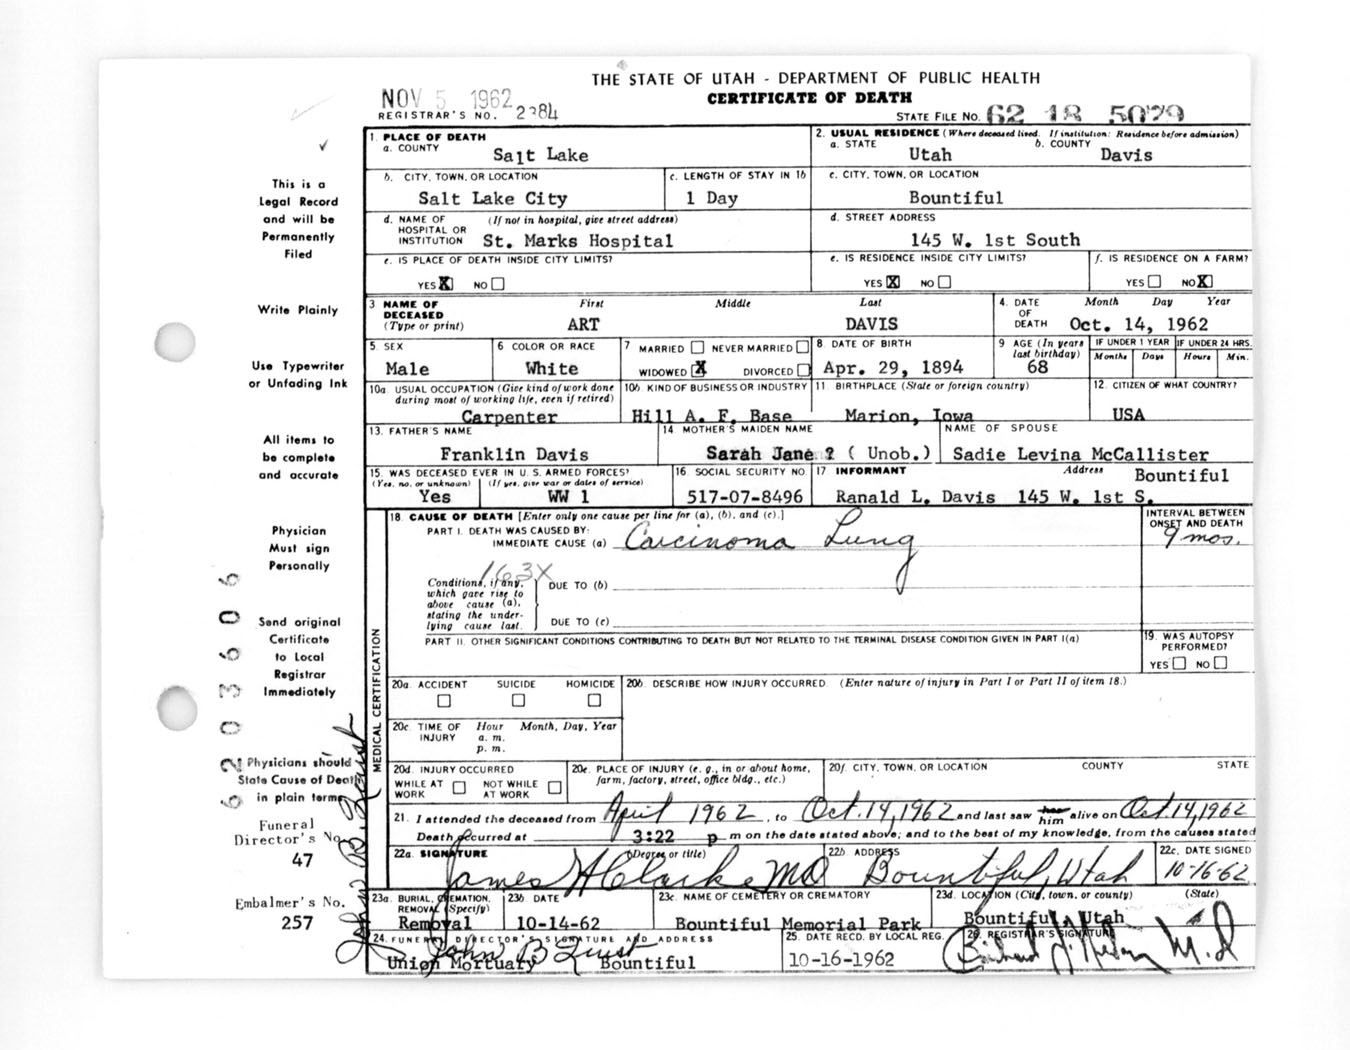 THE STATE OF UTAH - DEPARTMENT OF PUBLIC HEALTH
CERTIFICATE OF DEATH
NOV 5 1962
REGISTRAR'S NO. 2384
STATE FILE NO. 62 18 5029
1. PLACE OF DEATH
a. COUNTY Salt Lake
2. USUAL RESIDENCE (Where deceased lived. If institution: Residence before admission)
a. STATE Utah b. COUNTY Davis
b. CITY, TOWN, OR LOCATION Salt Lake City
c. LENGTH OF STAY IN 1b 1 Day
c. CITY, TOWN, OR LOCATION Bountiful
d. NAME OF HOSPITAL OR INSTITUTION (If not in hospital, give street address) St. Marks Hospital
d. STREET ADDRESS 145 W. 1st South
e. IS PLACE OF DEATH INSIDE CITY LIMITS? YES X NO
e. IS RESIDENCE INSIDE CITY LIMITS? YES X NO
f. IS RESIDENCE ON A FARM? YES NO X
3 NAME OF DECEASED (Type or print) First Middle Last
ART DAVIS
4. DATE OF DEATH Month Day Year
Oct. 14, 1962
5. SEX Male
6 COLOR OR RACE White
7 MARRIED NEVER MARRIED WIDOWED X DIVORCED
8 DATE OF BIRTH Apr. 29, 1894
9 AGE (In years last birthday) 68
IF UNDER 1 YEAR Months Days
IF UNDER 24 HRS. Hours Min.
10a USUAL OCCUPATION (Give kind of work done during most of working life, even if retired) Carpenter
10b KIND OF BUSINESS OR INDUSTRY Hill A. F. Base
11 BIRTHPLACE (State or foreign country) Marion, Iowa
12. CITIZEN OF WHAT COUNTRY? USA
13. FATHER'S NAME Franklin Davis
14 MOTHER'S MAIDEN NAME Sarah Jane ? ( Unob.)
NAME OF SPOUSE Sadie Levina McCallister
15. WAS DECEASED EVER IN U. S. ARMED FORCES?
(Yes, no, or unknown) Yes (If yes, give war or dates of service) WW 1
16 SOCIAL SECURITY NO. 517-07-8496
17 INFORMANT Address Bountiful
Ranald L. Davis 145 W. 1st S.
18. CAUSE OF DEATH [Enter only one cause per line for (a), (b), and (c).]
INTERVAL BETWEEN ONSET AND DEATH
PART I. DEATH WAS CAUSED BY:
IMMEDIATE CAUSE (a) Carcinoma Lung 9 mos.
163X
Conditions, if any, which gave rise to above cause (a), stating the underlying cause last.
DUE TO (b)
DUE TO (c)
PART II. OTHER SIGNIFICANT CONDITIONS CONTRIBUTING TO DEATH BUT NOT RELATED TO THE TERMINAL DISEASE CONDITION GIVEN IN PART I(a)
19. WAS AUTOPSY PERFORMED? YES NO
MEDICAL CERTIFICATION
20a. ACCIDENT SUICIDE HOMICIDE
20b. DESCRIBE HOW INJURY OCCURRED. (Enter nature of injury in Part I or Part II of item 18.)
20c. TIME OF INJURY Hour Month, Day, Year
a. m.
p. m.
20d. INJURY OCCURRED
WHILE AT WORK NOT WHILE AT WORK
20e. PLACE OF INJURY (e. g., in or about home, farm, factory, street, office bldg., etc.)
20f. CITY, TOWN, OR LOCATION COUNTY STATE
21. I attended the deceased from April 1962, to Oct. 14, 1962 and last saw her him alive on Oct 14, 1962
Death occurred at 3:22 p m on the date stated above; and to the best of my knowledge, from the causes stated
22a. SIGNATURE (Degree or title) James H Clark MD
22b. ADDRESS Bountiful, Utah
22c. DATE SIGNED 10-16-62
23a. BURIAL, CREMATION, REMOVAL (Specify) Removal
23b. DATE 10-14-62
23c. NAME OF CEMETERY OR CREMATORY Bountiful Memorial Park
23d. LOCATION (City, town, or county) (State) Bountiful, Utah
24. FUNERAL DIRECTOR'S SIGNATURE AND ADDRESS
John B Zeust
Union Mortuary Bountiful
25. DATE RECD. BY LOCAL REG. 10-16-1962
26. REGISTRAR'S SIGNATURE
M.D
This is a
Legal Record
and will be
Permanently
Filed
Write Plainly
Use Typewriter
or Unfading Ink
All items to
be complete
and accurate
Physician
Must sign
Personally
Send original
Certificate
to Local
Registrar
Immediately
Physicians should
State Cause of Death
in plain terms
Funeral
Director's No.
47
Embalmer's No.
257